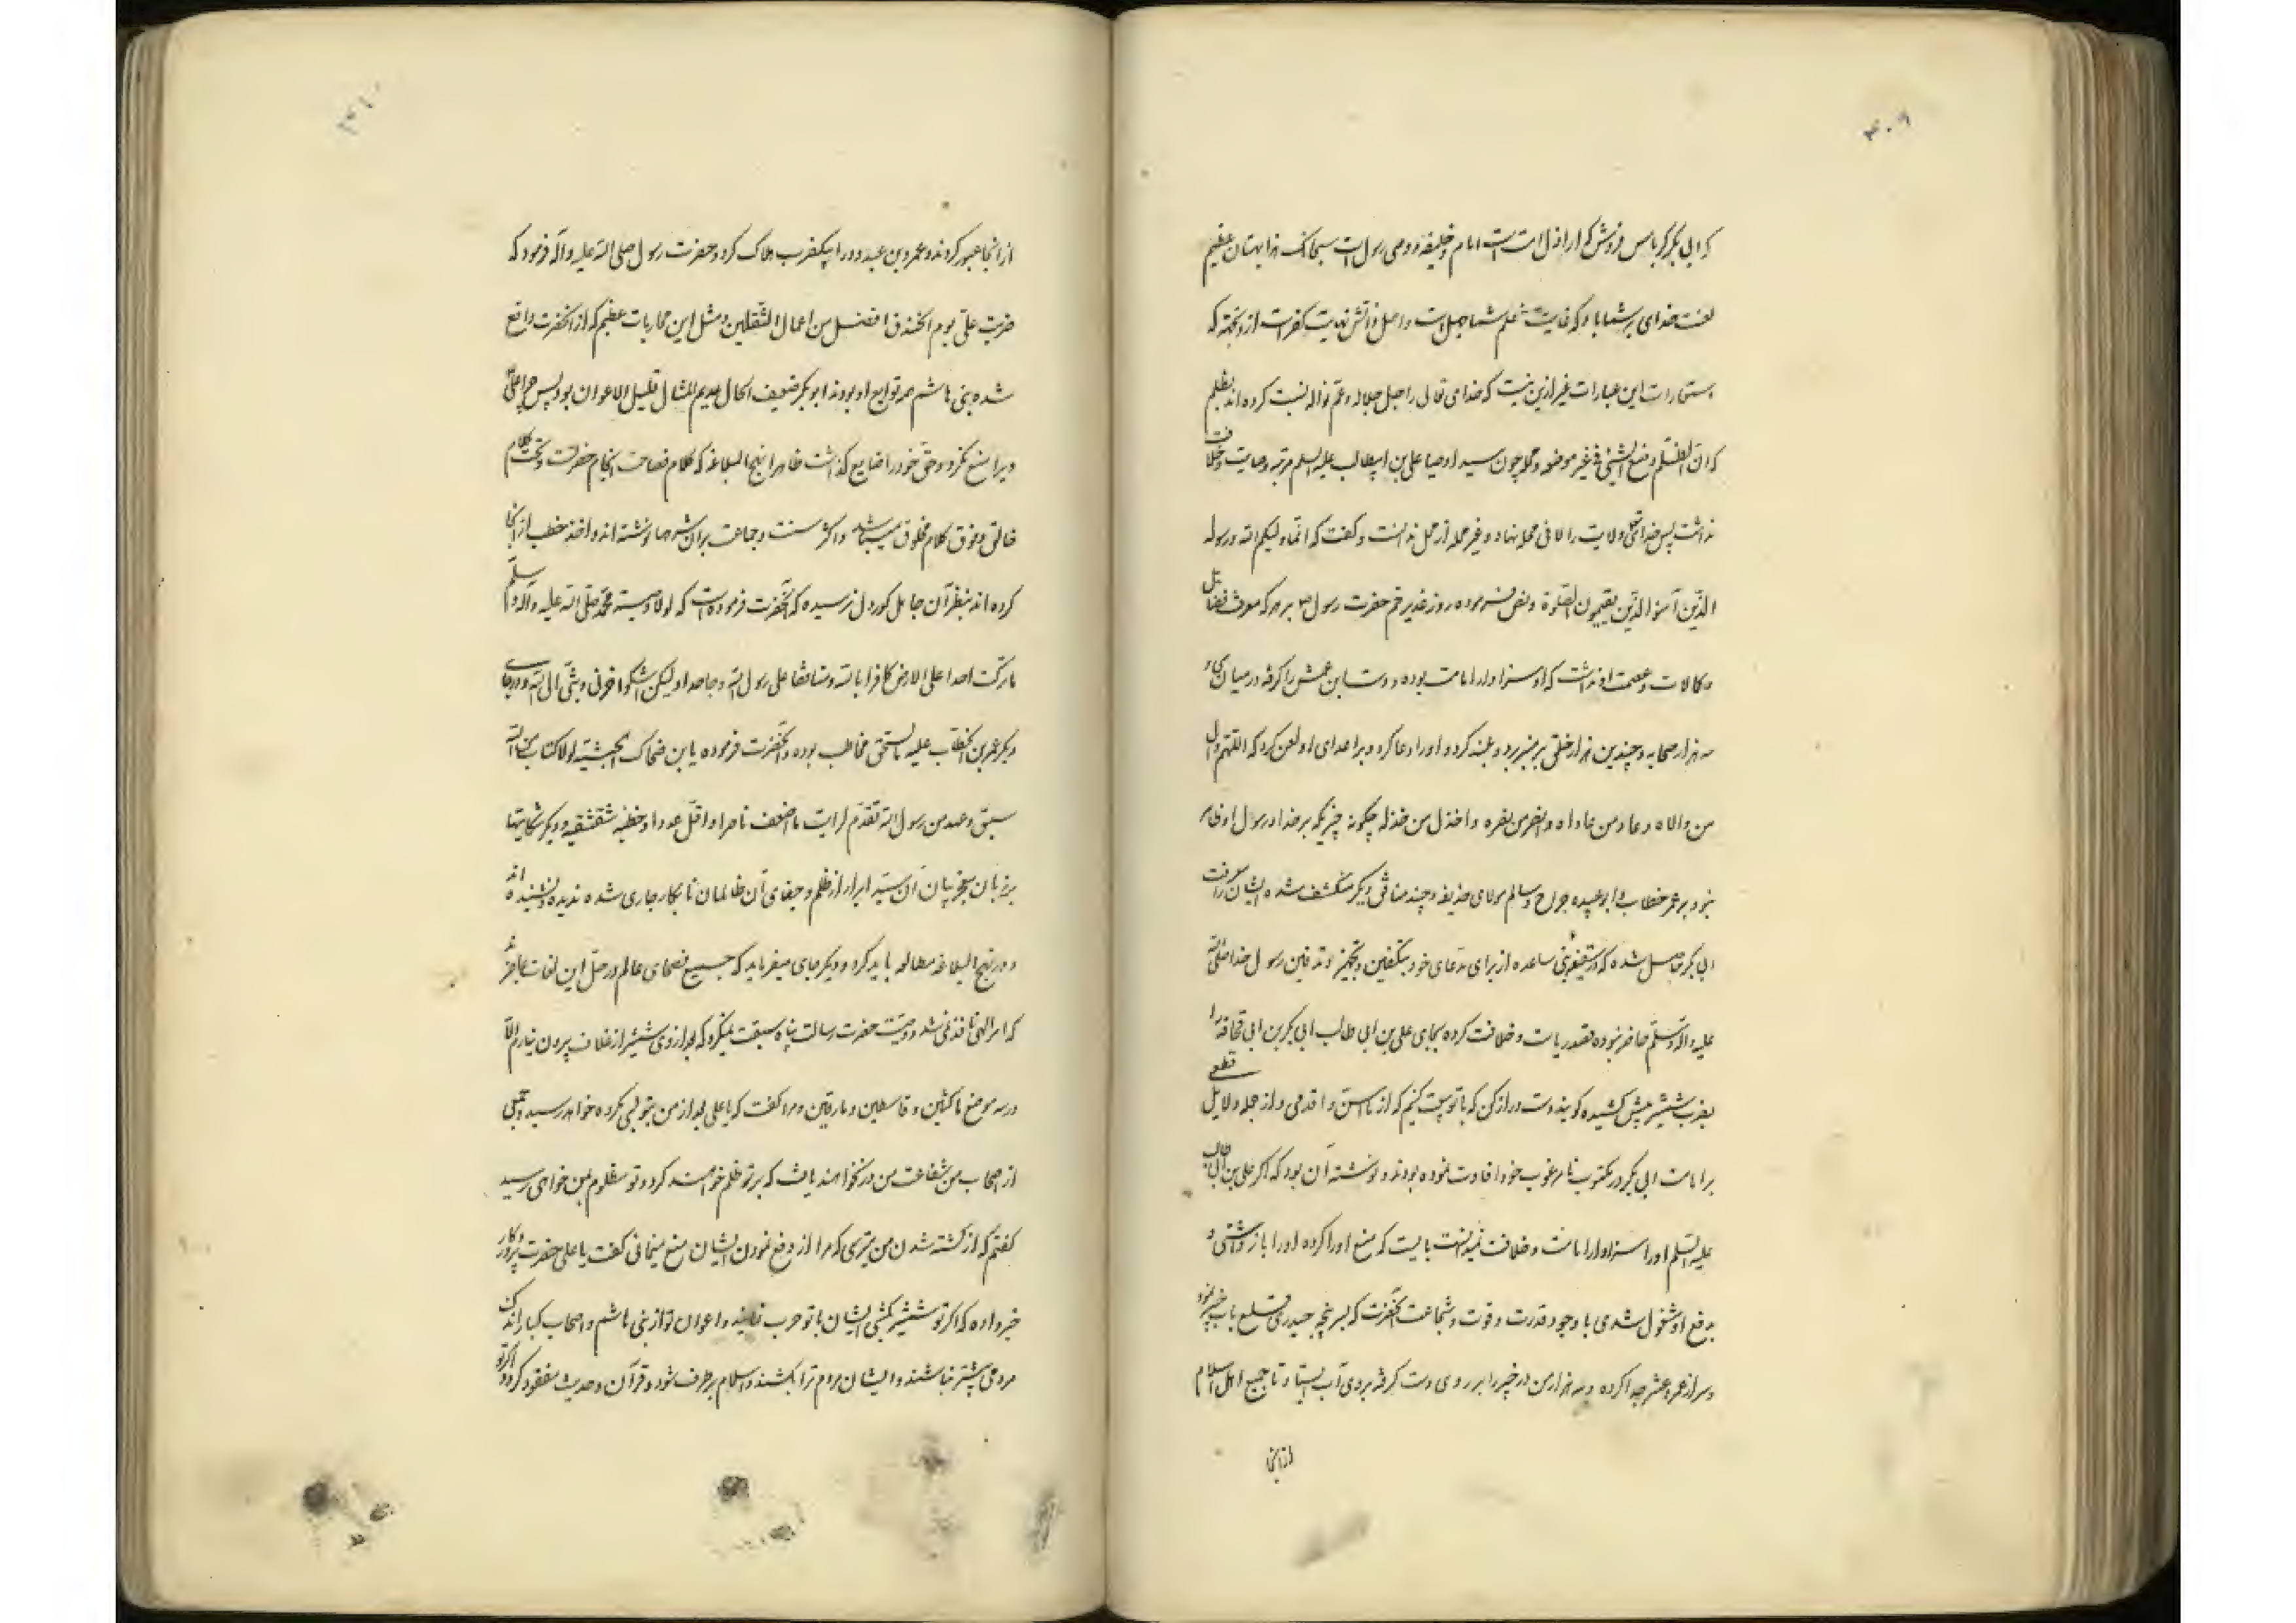 ۴۰۹
که ابی بکر کرباس فروش که از اراذل امتست امام و خلیفه و وصی رسول است سبحانک هذا بهتان عظیم
لعنت خدای بر شما باد که غایت علم شما جهل است و اصل دانش نهایت کفر است از و نخته که
این عبارات غیر ازین نیست که خدای تعالی را جل جلاله و عم نواله نسبت کرده اند بظلم
که ان الظلم وضع الشیئ فی غیر موضعه و محله چون سید اوصیا علی بن ابیطالب علیه السلم مرتبه وصایت و خلافت
نداشت پس خدا ولایت را لا فی محله نهاد و غیر محله از محل ندانست و کفت که انما ولیکم الله و رسوله
الذین آمنوا الذین یقیمون الصلوة و نص فرموده روز غدیر خم حضرت رسول ص بر هر که معرف فضایل
و کمالات و عصمت او نداشت که او سزاوار امامت بوده و دست ابن عمش را کرفته در میان
سه هزار صحابه و چندین هزار خلق بر منبر برد و بلند کرد و او را دعا کرد و بر اعدای او لعن کرد که اللهم وال
من والاه و عاد من عاداه و انصر من نصره و اخذل من خذله چکونه چیزیکه بر خدا و رسول او ظاهر
نبود بر عمر خطاب و ابو عبیده جراح و سالم مولای حذیفه و چند منافق دیکر منکشف شده ایشان را معرفت
ابی بکر حاصل شده که در سقیفه بنی ساعده از برای مدعای خود بتکفین و تجهیز و تدفین رسول خدا صلی الله
علیه و اله و سلم حاضر نبوده قصد ریاست و خلافت کرده بجای علی بن ابی طالب ابی بکر بن ابی قحافه را
بضرب شمشیر پیش کشیده کویند دست دراز کن که با تو بیعت کنیم که از ما اسن و اقدمی و از جمله دلایل قطعی
بر امامت ابی بکر در مکتوب نامرغوب خود افادت نموده بودند و نوشته آن بود که اکر علی بن ابی طالب
علیه السلم او را سزاوار امامت و خلافت نمیدانست بایست که منع او کرده او را باز داشتی و
بدفع او مشغول شدی با وجود قدرت و قوت و شجاعت آنحضرت که بسر پنجه حیدری قلع باب خیبر نمود
و سر از عمرو عنتر جدا کرده و سه هزار من در خیبر را بر روی دست کرفته بر روی آب ایستاد تا جمیع اهل اسلام
از آنجا
۴۱۰
از آنجا عبور کردند و عمرو بن عبدود را بیکضرب هلاک کرد و حضرت رسول صلی الله علیه و آله فرمود که
ضربت علی یوم الخندق افضل من اعمال الثقلین و مثل این محاربات عظیم که از آنحضرت واقع
شده بنی هاشم همه توابع او بودند ابو بکر ضعیف الحال عدیم المثال قلیل الاعوان بود پس چرا علی
ویرا منع نکرد و حق خود را ضایع کذاشت ظاهرا نهج البلاغه که کلام فصاحت انجام حضرتست و تحت کلام
خالق و فوق کلام مخلوق میباشد و اکثر سنت و جماعت بران شرحها نوشته اند و اخذ خطب از آنجا
کرده اند بنظر آن جاهل کوردل نرسیده که آنحضرت فرموده است که لولا وصیته محمد صلی الله علیه و آله و سلم
ما ترکت احدا علی الارض کافرا بالله و منافقا علی رسول الله و جاحدا و لیکن اشکوا حزنی و بثی الی الله و در جای
دیکر عمر بن الخطاب علیه ما یستحق مخاطب بوده و آنحضرت فرموده یابن ضحاک الحبشیة لولا کتاب من الله
سبق و عهد من رسول الله تقدم لرایت ما اضعف ناصرا و اقل عددا و خطبه شقشقیه و دیکر شکایتها
بر زبان معجز بیان آن سید ابرار از ظلم و جفای آن ظالمان نابکار جاری شده ندیده و نشنیده اند
و در نهج البلاغه مطالعه باید کرد و دیکر جای میفرماید که جمیع فصحای عالم در حل این لغات عاجزند
که امر الهی نافذ نمی شد و وصیت حضرت رسالت پناه سبقت نمیکرد که بعد از وی شمشیر از غلاف بیرون نیارم الا
در سه موضع ناکثین و قاسطین و مارقین و مرا کفت که یا علی بعد از من بتو مکروه خواهد رسید و جمعی
از اصحاب من شفاعت من در نخواهند یافت که بر تو ظلم خواهند کرد و تو مظلوم بمن خواهی رسید
کفتم که از کشته شدن من میترسی که مرا از دفع نمودن ایشان منع مینمائی کفت یا علی حضرت پروردکار
خبر داده که اکر تو شمشیر بکشی ایشان با تو حرب نمایند و اعوان تو از بنی هاشم و اصحاب کبار اندک
مردمی بیشتر نباشند و ایشان مردم ترا بکشند و اسلام برطرف شود و قرآن و حدیث مفقود کردد و اکر تو